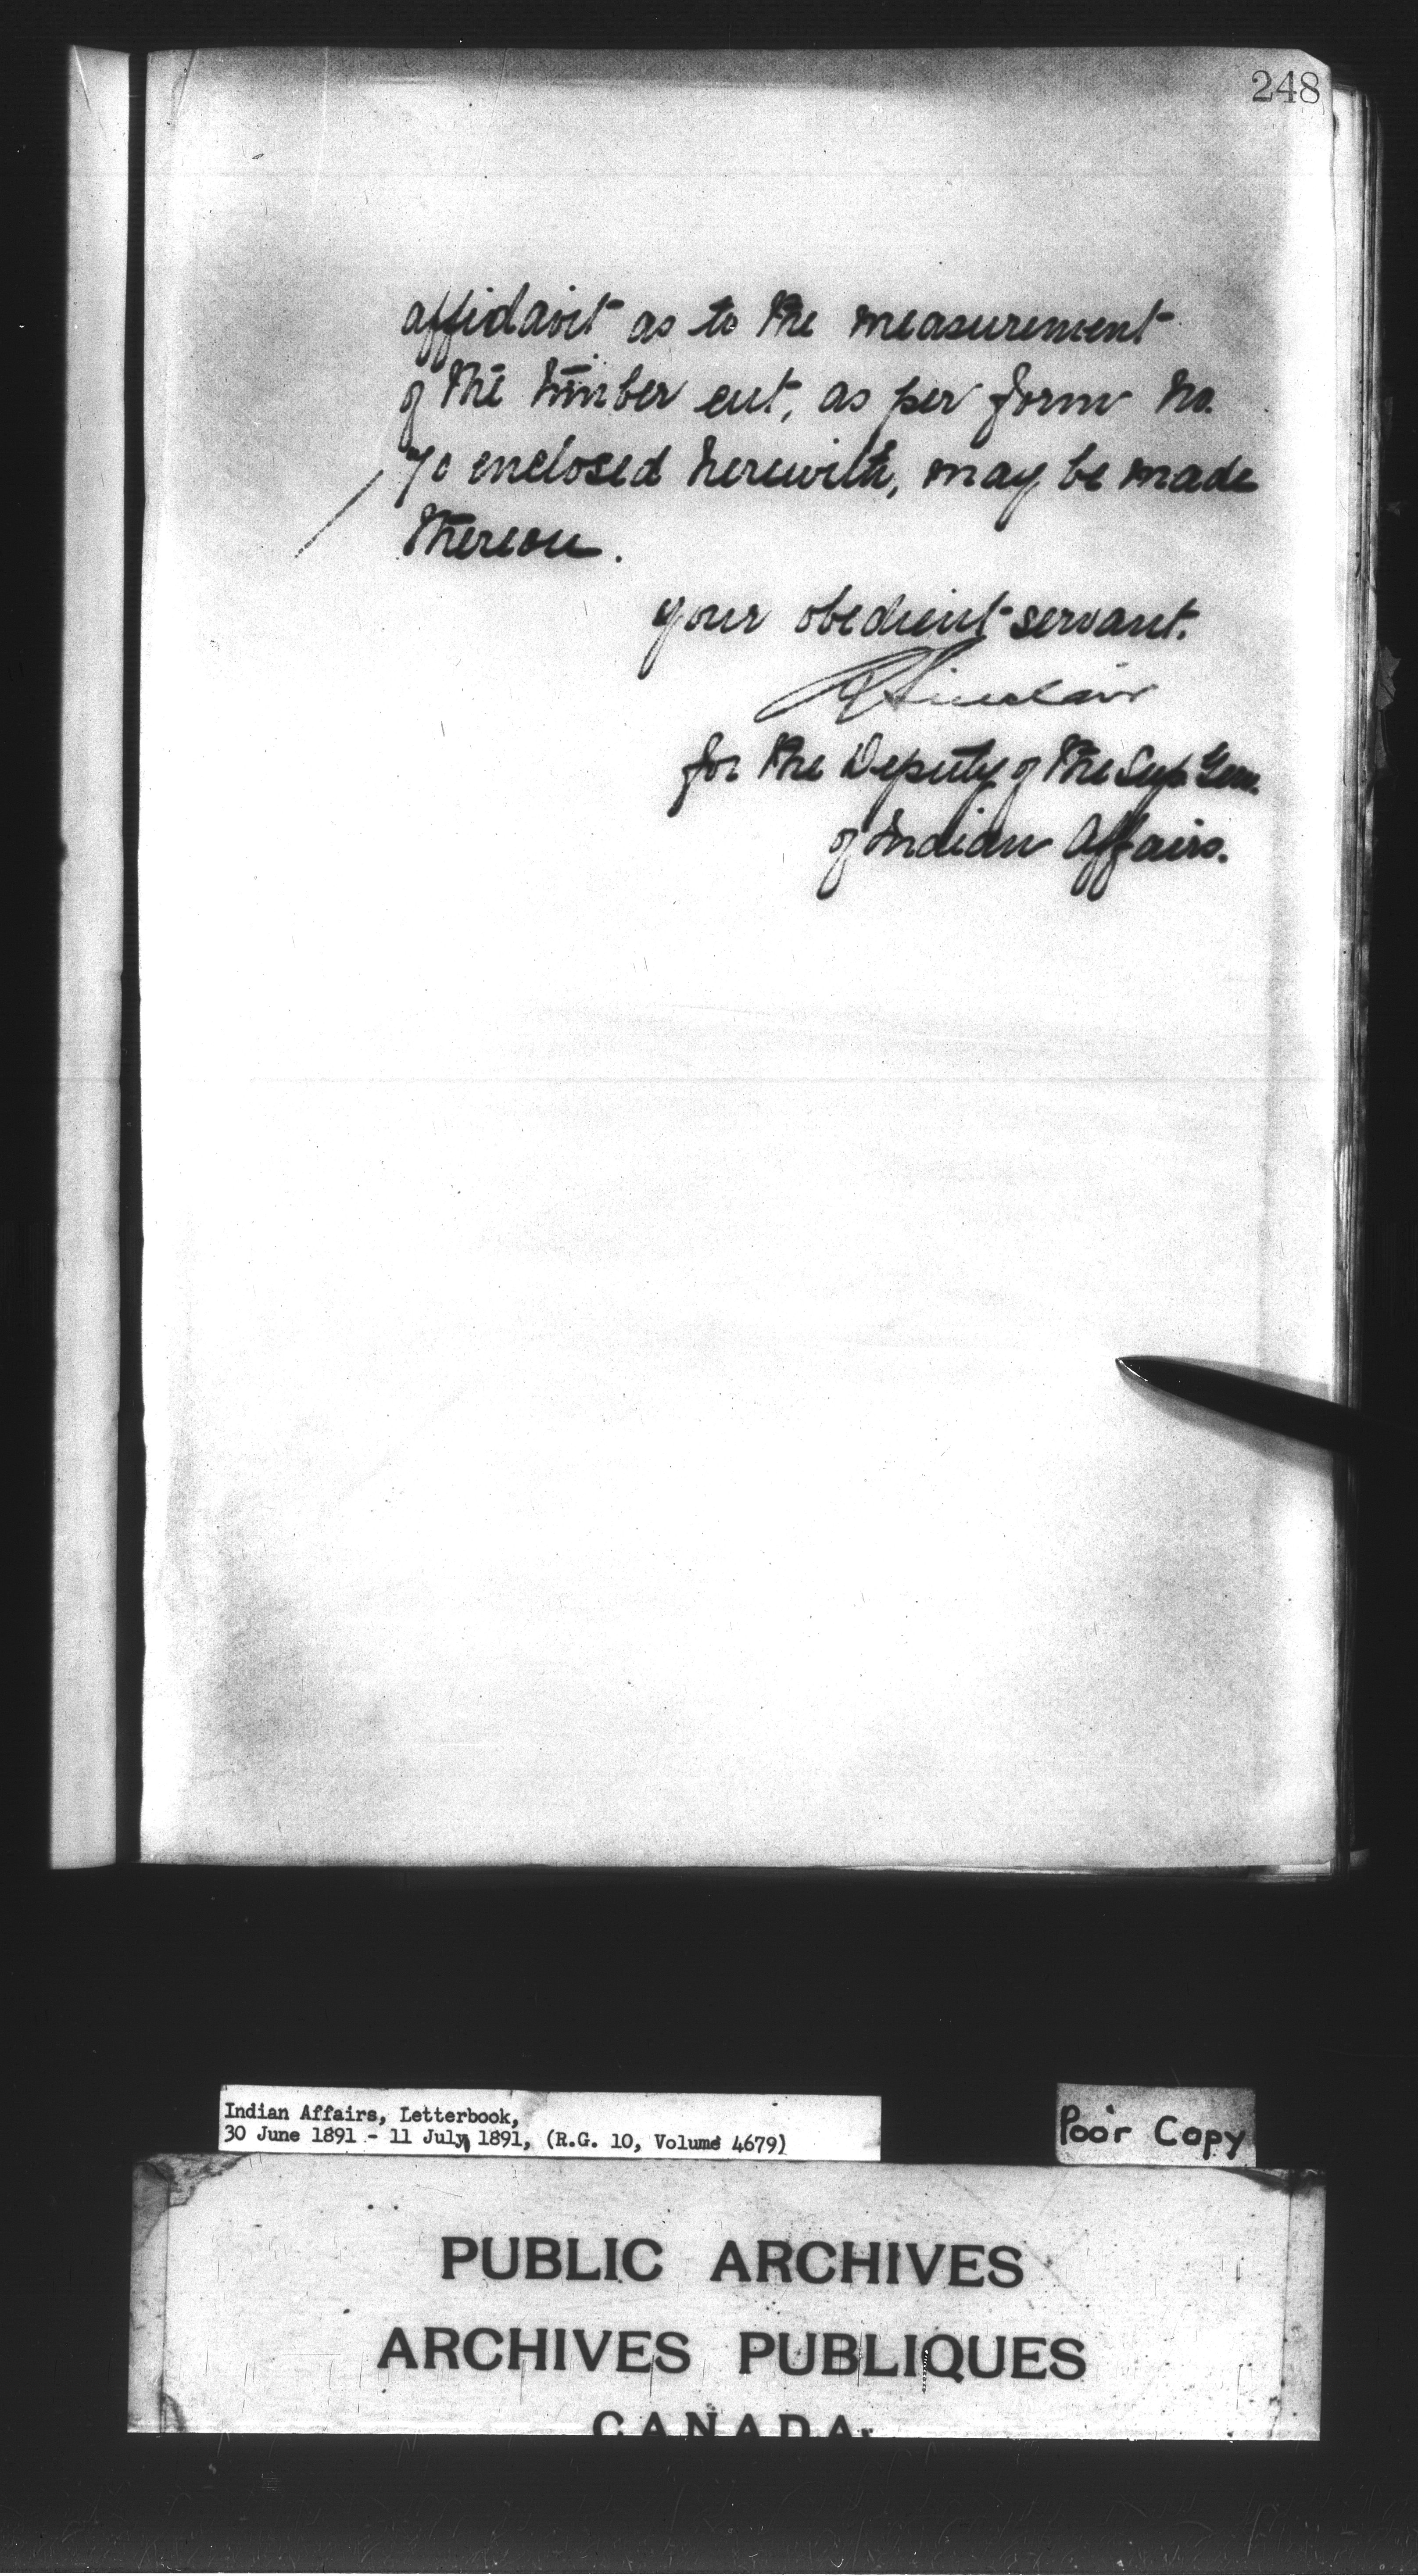 248
affidavit as to the measurement
of the timber cut, as per form No.
70 enclosed herewith, may be made
thereon.
your obedient servant.
Sinclair
for the Deputy of the Sup. Gen.
of Indian Affairs.
Indian Affairs, Letterbook,
30 June 1891 - 11 July, 1891, (R.G. 10, Volume 4679)
Poor Copy
PUBLIC ARCHIVES
ARCHIVES PUBLIQUES
CANADA